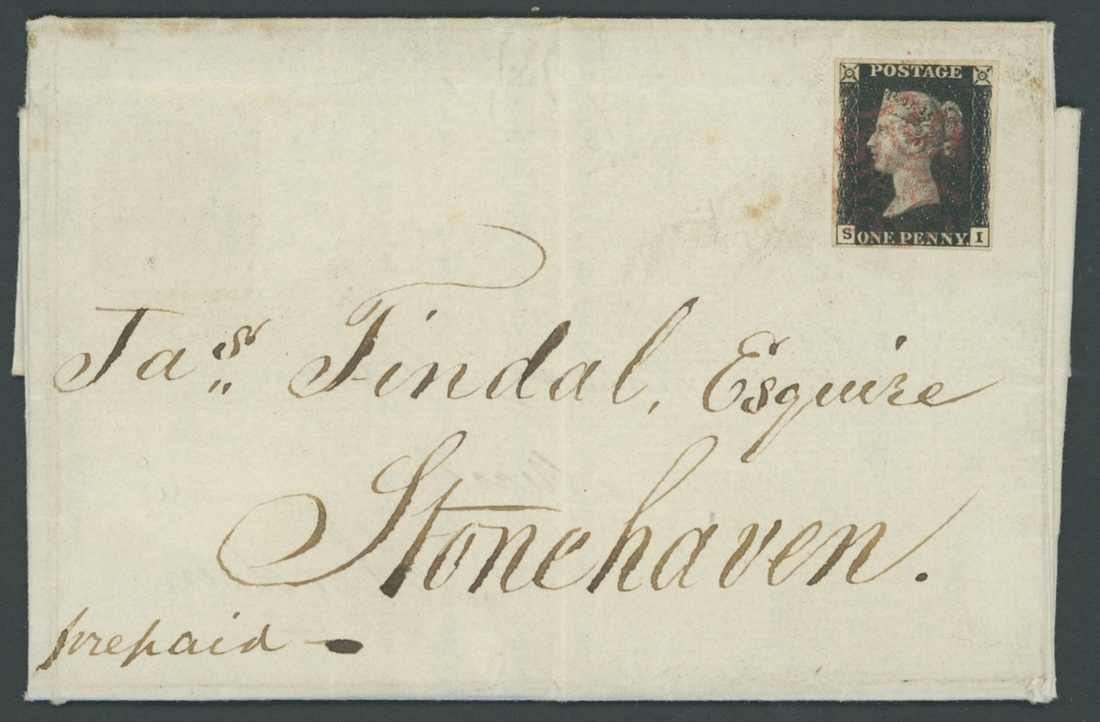 POSTAGE
S ONE PENNY. I
Jas. Tindal, Esquire
Stonehaven.
prepaid